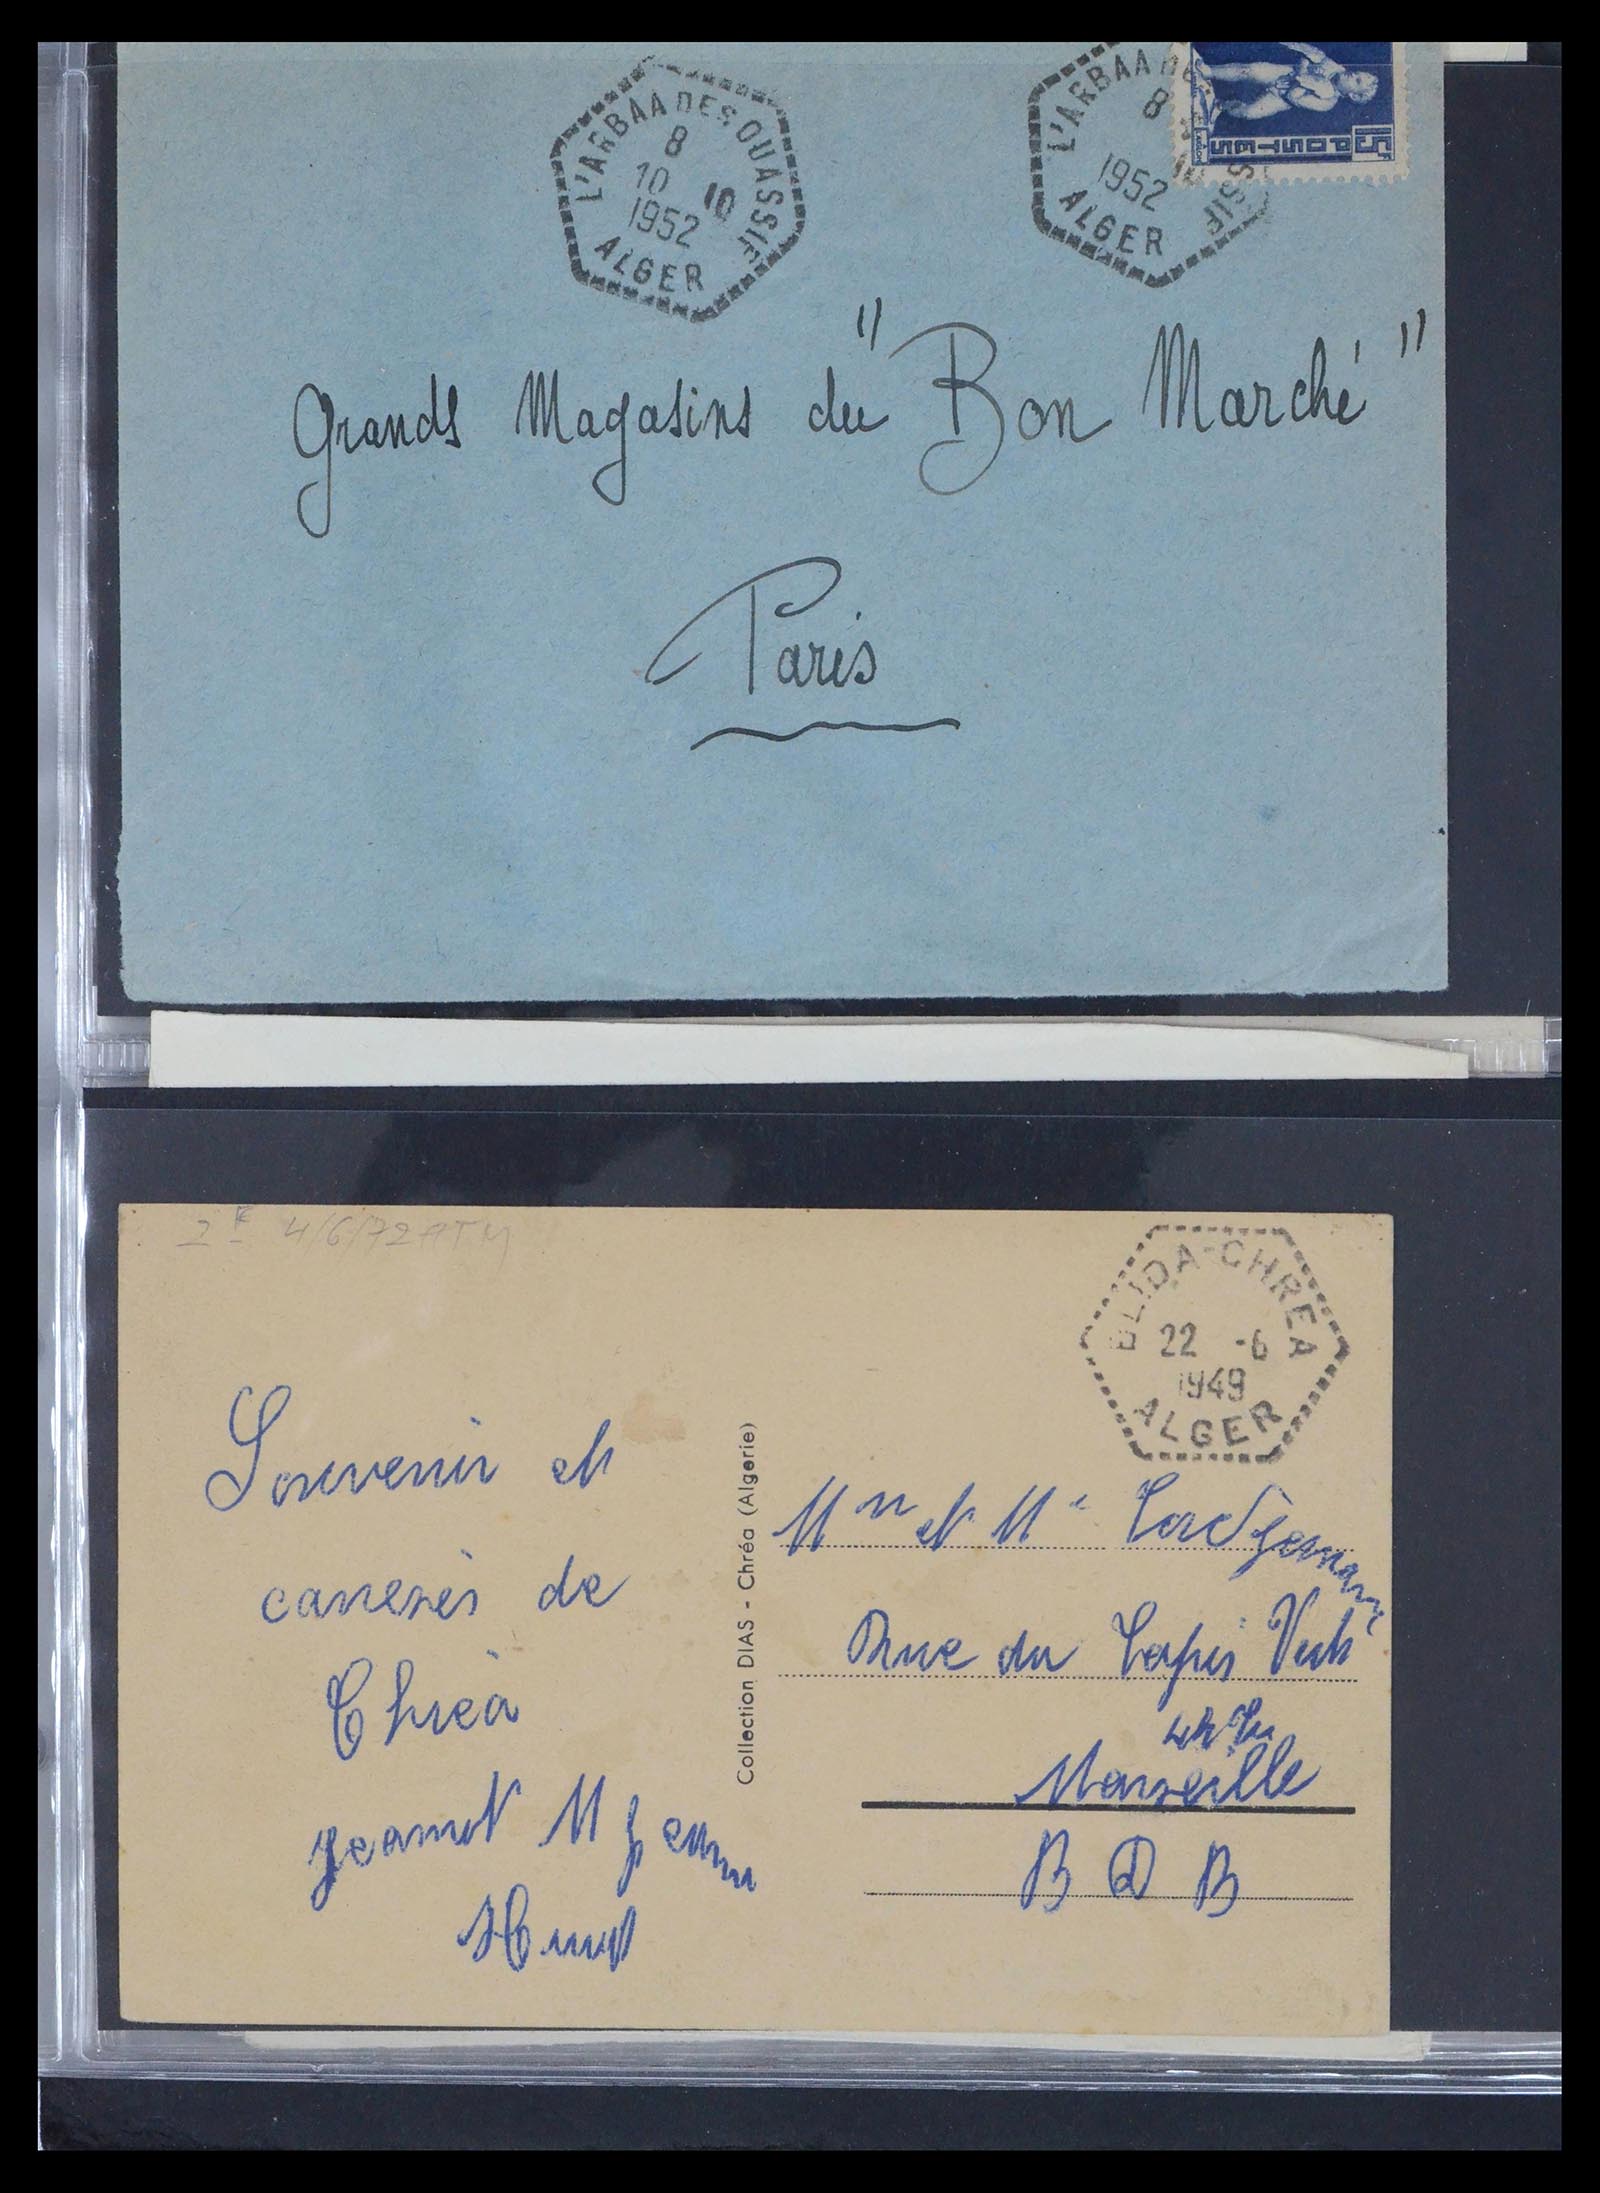 L'ARBAA DES OUASSIF
8
10 10
1952
ALGER
L'ARBAA DE SSIF
8
10
1952
ALGER
15F POSTES
Grands Magasins du "Bon Marché"
Paris
2E 4/6/72
BLIDA-CHREA
22 -6
1949
ALGER
Souvenir et
de
Chréa
Jeannot
Collection DIAS - Chréa (Algerie)
et
Rue du Tapis Vert
Marseille
B D R